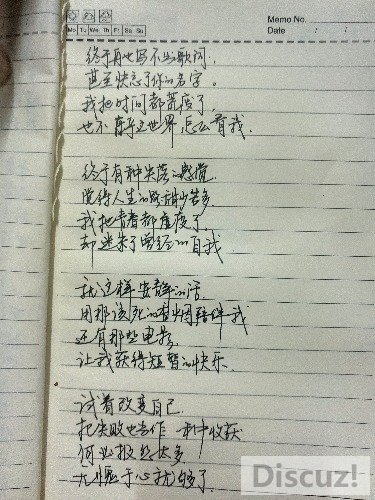 Memo No.
Mo Tu We Th Fr Sa Su
Date / /
终于再也写不出歌词
甚至快忘了你的名字。
我把时间都荒废了,
也不在乎这世界怎么看我.
终于有种失落的感慨.
觉得人生的路甜少苦多.
我把青春都虚度了
却迷失了曾经的自我
就这样安静的活.
用那该死的香烟陪伴我
还有那些电影.
让我获得短暂的快乐.
试着改变自己.
把失败也当作一种收获
何必抱怨太多
无愧于心就够了.
Discuz!